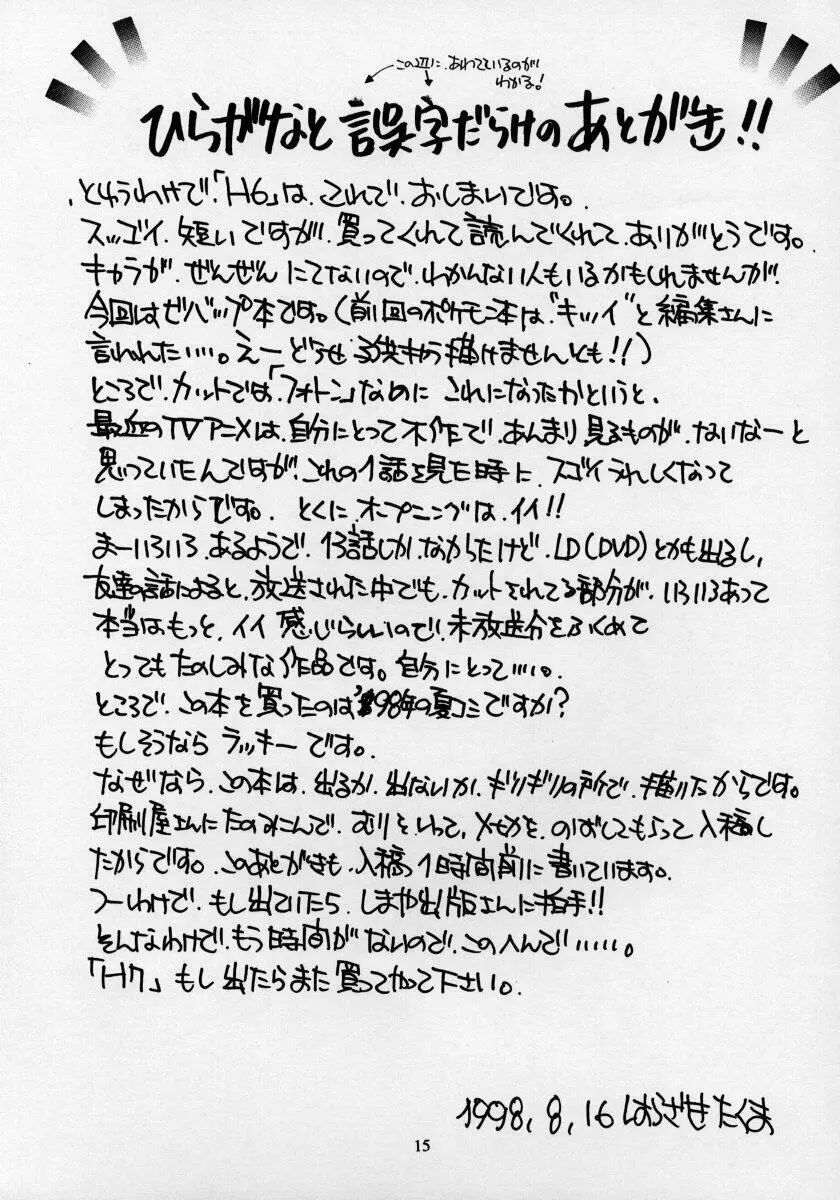 この辺に、あわてているのが
わかる!
ひらがなと誤字だらけのあとがき!!
、とゆうわけで、「H6」は、これで、おしまいです。
スッゴイ、短いですが、買ってくれて読んでくれて、ありがとうです。
キャラが、ぜんぜん、にてないので、わかんない人もいるかもしれませんが、
今回はゼバップ本です。(前回のポケモン本は、"キッツイ"と編集さんに
言われた……。えーどうせ子供きり描けませんとも!!)
ところで、カットでは、「フォトン」なのに、これになったかというと、
最近のTVアニメは、自分にとって不作で、あんまり見るものが、ないなーと
思っていたんですが、これの1話を見た時に、スゴイうれしくなって
しまったからです。とくに、オープニングは、イイ!!
まーいろいろ、あるようで、13話しか、なかったけど、LD(DVD)とかも出るし、
友達の話によると、放送された中でも、カットされてる部分が、いろいろあって
本当は、もっと、イイ感じらしいので、未放送分をふくめて
とってもたのしみな作品です。自分にとって……。
ところで、この本を買ったのは'98年の夏コミですか?
もしそうなら、ラッキーです。
なぜなら、この本は、出るか、出ないか、ギリギリの所で、描いたからです。
印刷屋さんにたのみこんで、むりをいって、〆切を、のばしてもらって入稿し
たからです。このあとがきも、入稿1時間前に書いています。
つーわけで、もし出ていたら、しまや出版さんに拍手!!
そんなわけで、もう時間がないので、このへんで……。
「H7」もし出たらまた買ってやって下さい。
1998, 8, 16 はらざきたくま
15